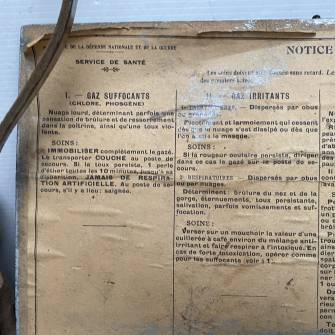 DE LA DÉFENSE NATIONALE ET DE LA GUERRE
SERVICE DE SANTÉ
NOTICE
Les soins doivent être donnés sans retard.
des premiers
I. — GAZ SUFFOCANTS
(CHLORE, PHOSGÈNE)
Nuage lourd, déterminant parfois une
sensation de brûlure et de resserrement
dans la poitrine, ainsi qu'une toux vio-
lente.
SOINS :
IMMOBILISER complètement le gazé.
Le transporter COUCHÉ au poste de
secours. Si la toux persiste, 1
d'éther toutes les 10 minutes, jusqu'à sa
disparition. JAMAIS DE RESPIRA-
TION ARTIFICIELLE. Au poste de se-
cours, s'il y a lieu : saignée.
II. — GAZ IRRITANTS
Dispersés par obus
ou grenades.
Picotement et larmoiement qui cessent
dès que le nuage s'est dissipé ou dès que
l'on a mis le masque.
SOINS :
Si la rougeur oculaire persiste, diriger
dans ce cas le gazé sur le poste de se-
cours.
2° RESPIRATOIRES — Dispersés par obus
ou par nuages.
Déterminent : brûlure du nez et de la
gorge, éternuements, toux persistante,
salivation, parfois vomissements et suf-
focation.
SOINS :
Verser sur un mouchoir la valeur d'une
cuillerée à café environ du mélange anti-
irritant et faire respirer à l'intoxiqué. En
cas de forte intoxication, opérer comme
pour les suffocants (voir § 1).